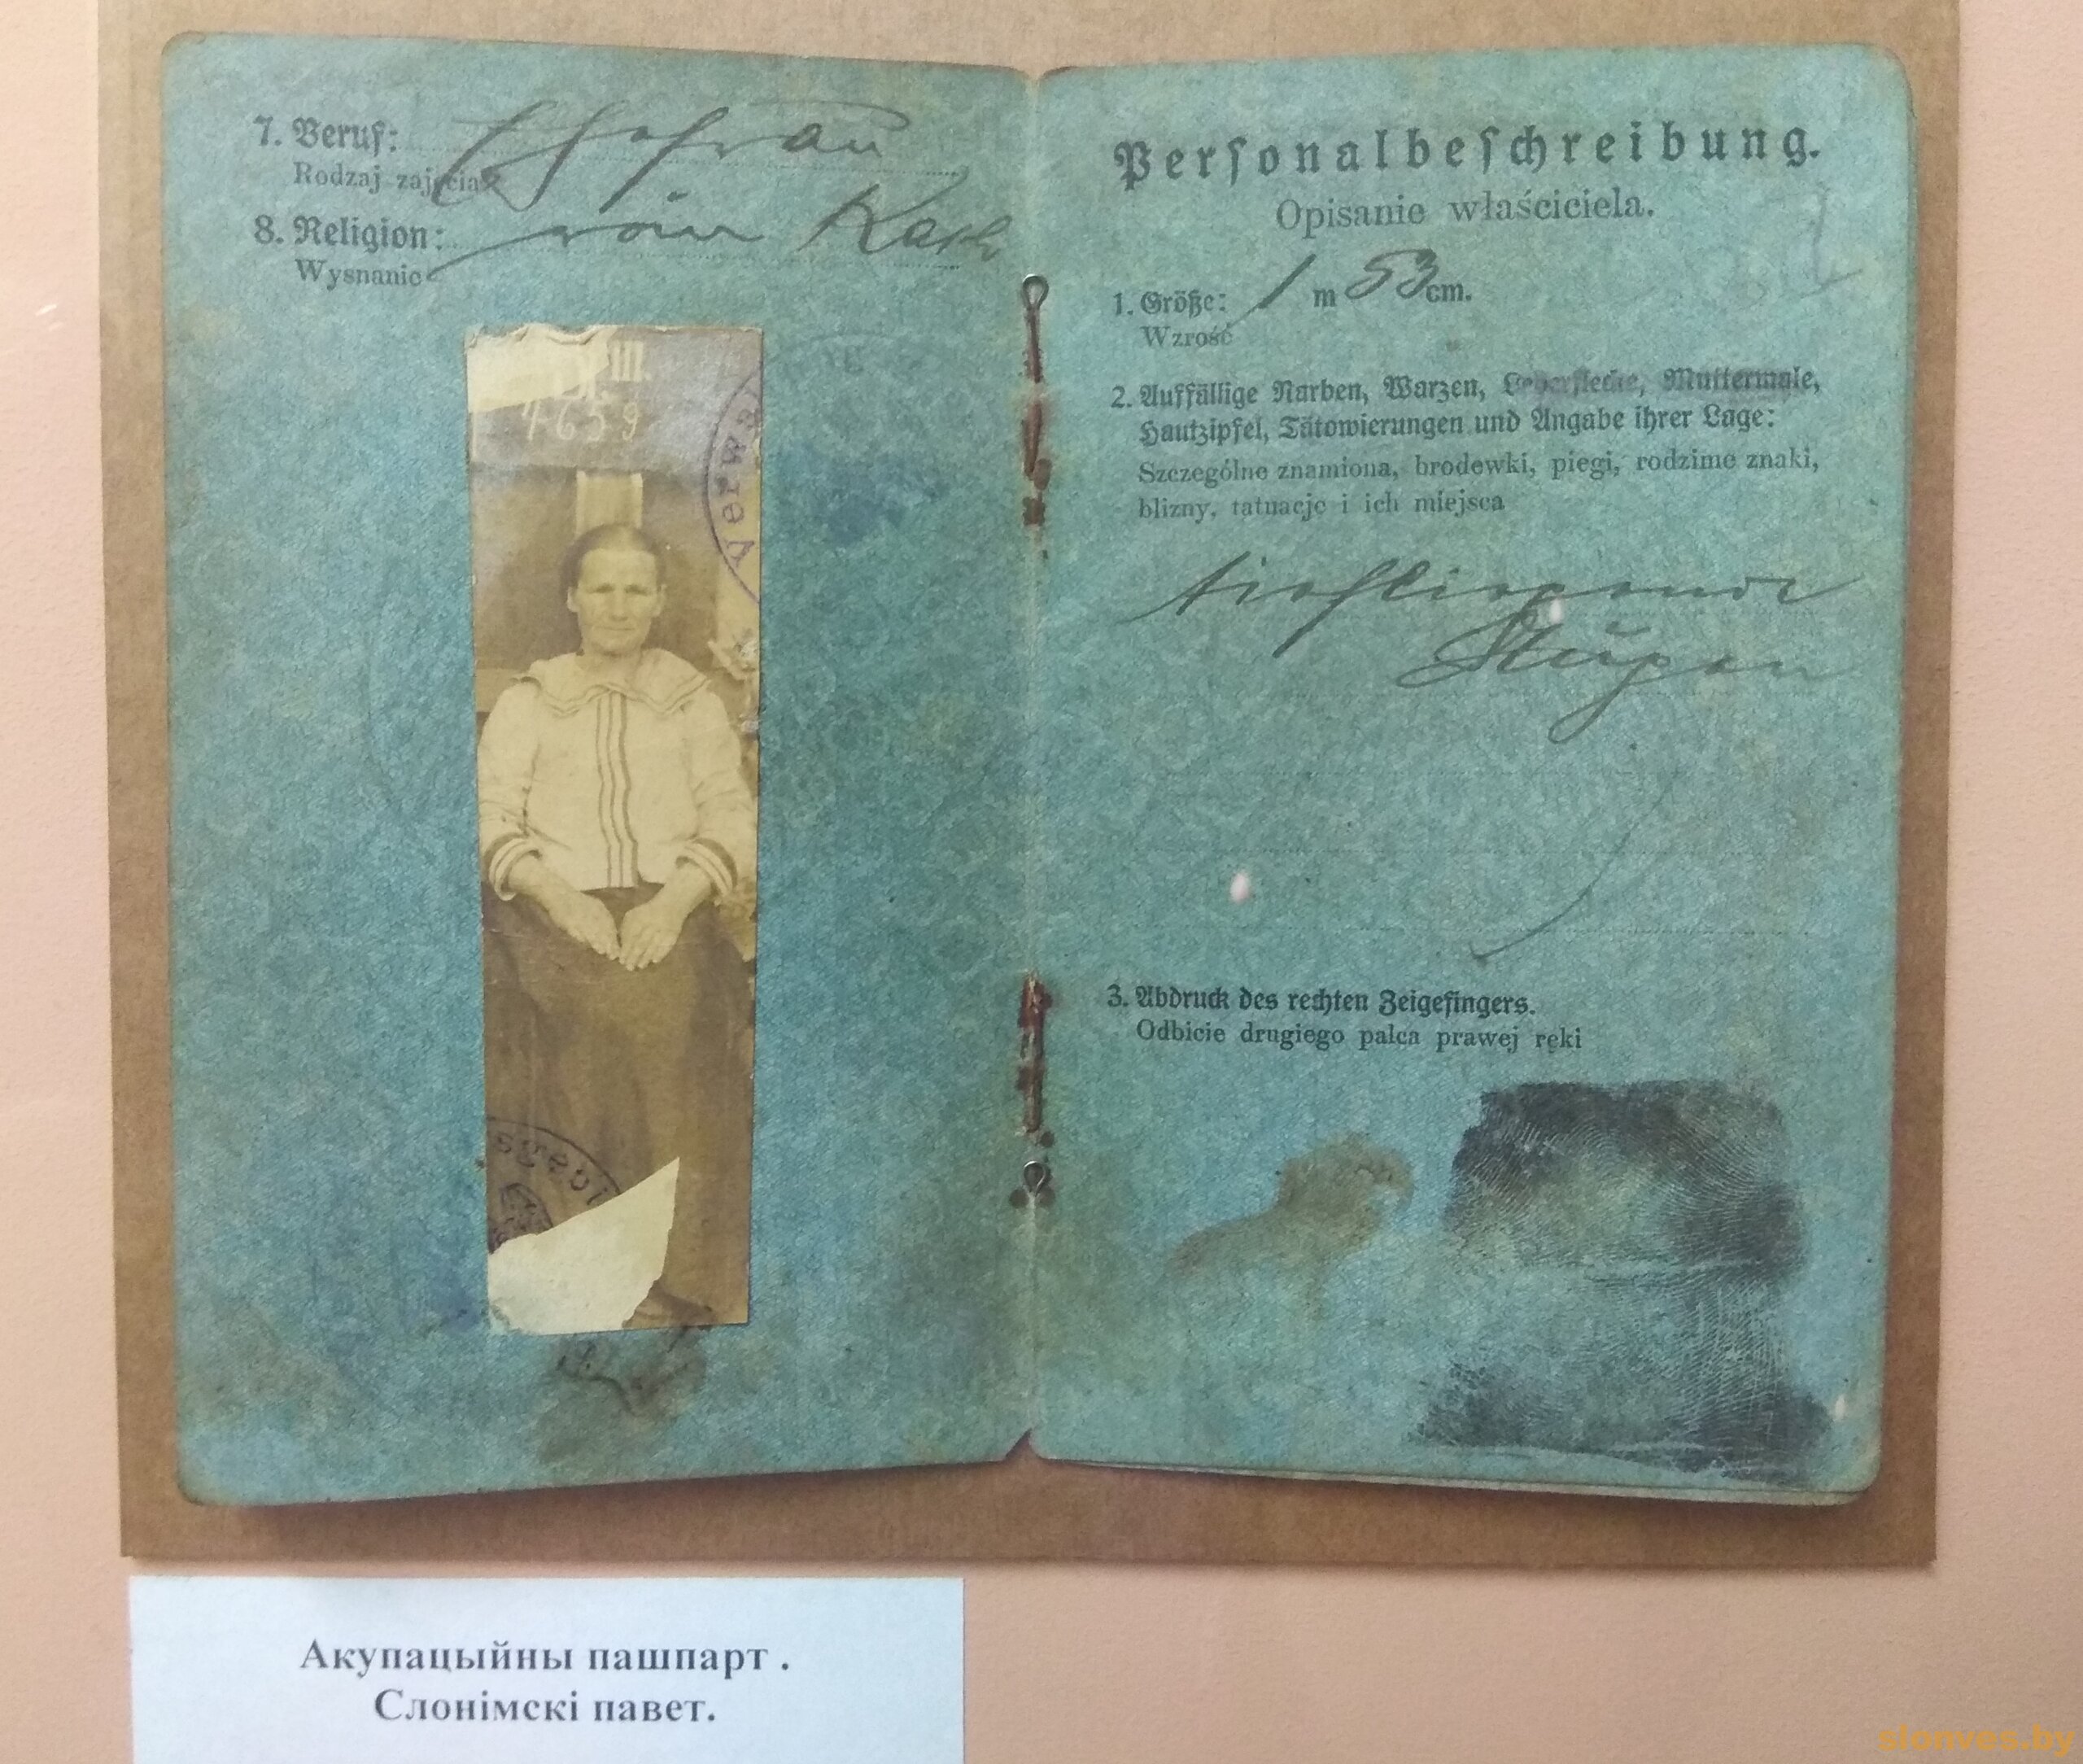 7. Beruf: Ehefrau
Rodzaj zajęcia
8. Religion: röm Kath
Wysnanie
III.
4659
Verwa
sgebi
Personalbeschreibung.
Opisanie właściciela.
1. Größe: 1 m 53 cm.
Wzrość
2. Auffällige Narben, Warzen, Leberflecke, Muttermale,
Hautzipfel, Tätowierungen und Angabe ihrer Lage:
Szczególne znamiona, brodewki, piegi, rodzime znaki,
blizny, tatuacje i ich miejsca
tiefliegende
Augen
3. Abdruck des rechten Zeigefingers.
Odbicie drugiego palca prawej ręki
Акупацыйны пашпарт .
Слонімскі павет.
slonves.by